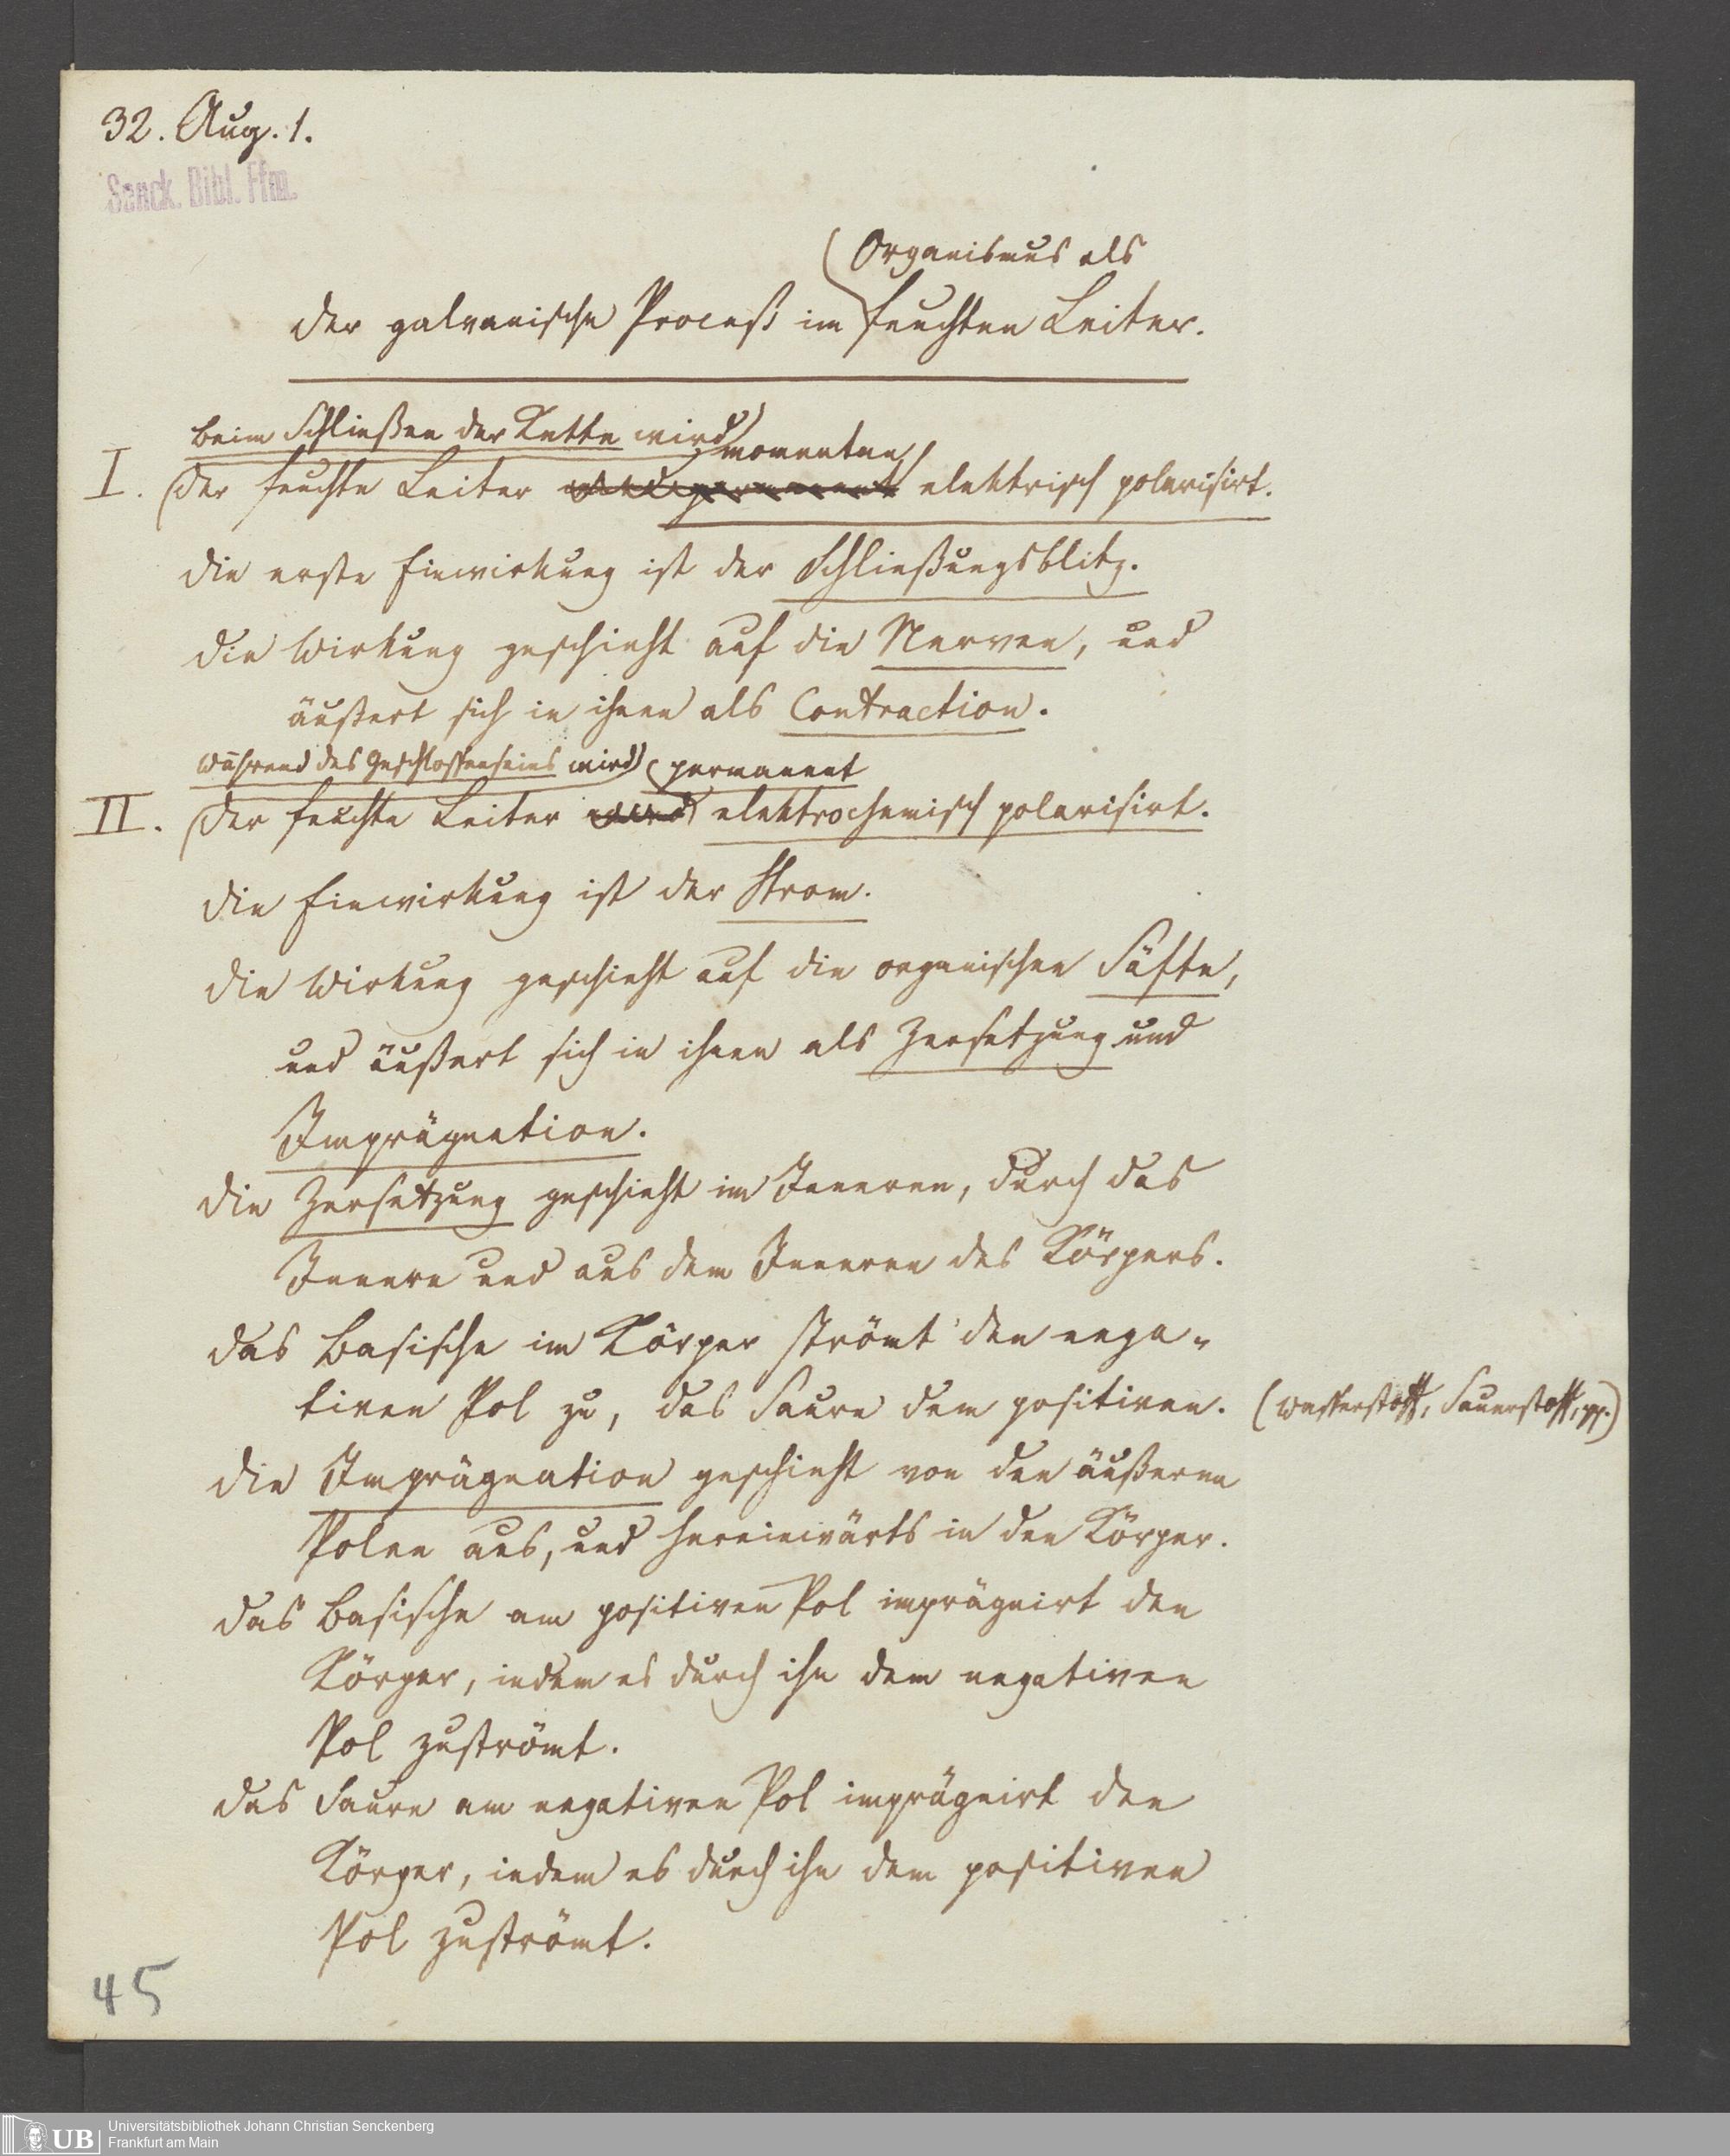 32. Aug. 1.
Senck. Bibl. Ffm.
Organismus als
der galvanische Proceß im feuchten Leiter.
beim Schließen der Kette wird momentan
I. der feuchte Leiter wird permanent elektrisch polarisirt.
die erste Einwirkung ist der Schließungsblitz.
die Wirkung geschieht auf die Nerven, und
äußert sich in ihnen als Contraction.
während des Geschlossenseins wird permanent
II. der feuchte Leiter wird elektrochemisch polarisirt.
die Einwirkung ist der Strom.
die Wirkung geschieht auf die organischen Säfte,
und äußert sich in ihnen als Zersetzung und
Imprägnation.
die Zersetzung geschieht im Inneren, durch das
Innere und aus dem Inneren des Körpers.
das Basische im Körper strömt den nega-
tiven Pol zu, das Saure dem positiven. (Wasserstoff, Sauerstoff, pp.)
die Imprägnation geschieht von den äußeren
Polen aus, und hereinwärts in den Körper.
das Basische am positiven Pol imprägnirt den
Körper, indem es durch ihn dem negativen
Pol zuströmt.
das Saure am negativen Pol imprägnirt den
Körper, indem es durch ihn dem positiven
Pol zuströmt.
45
UB
Universitätsbibliothek Johann Christian Senckenberg
Frankfurt am Main